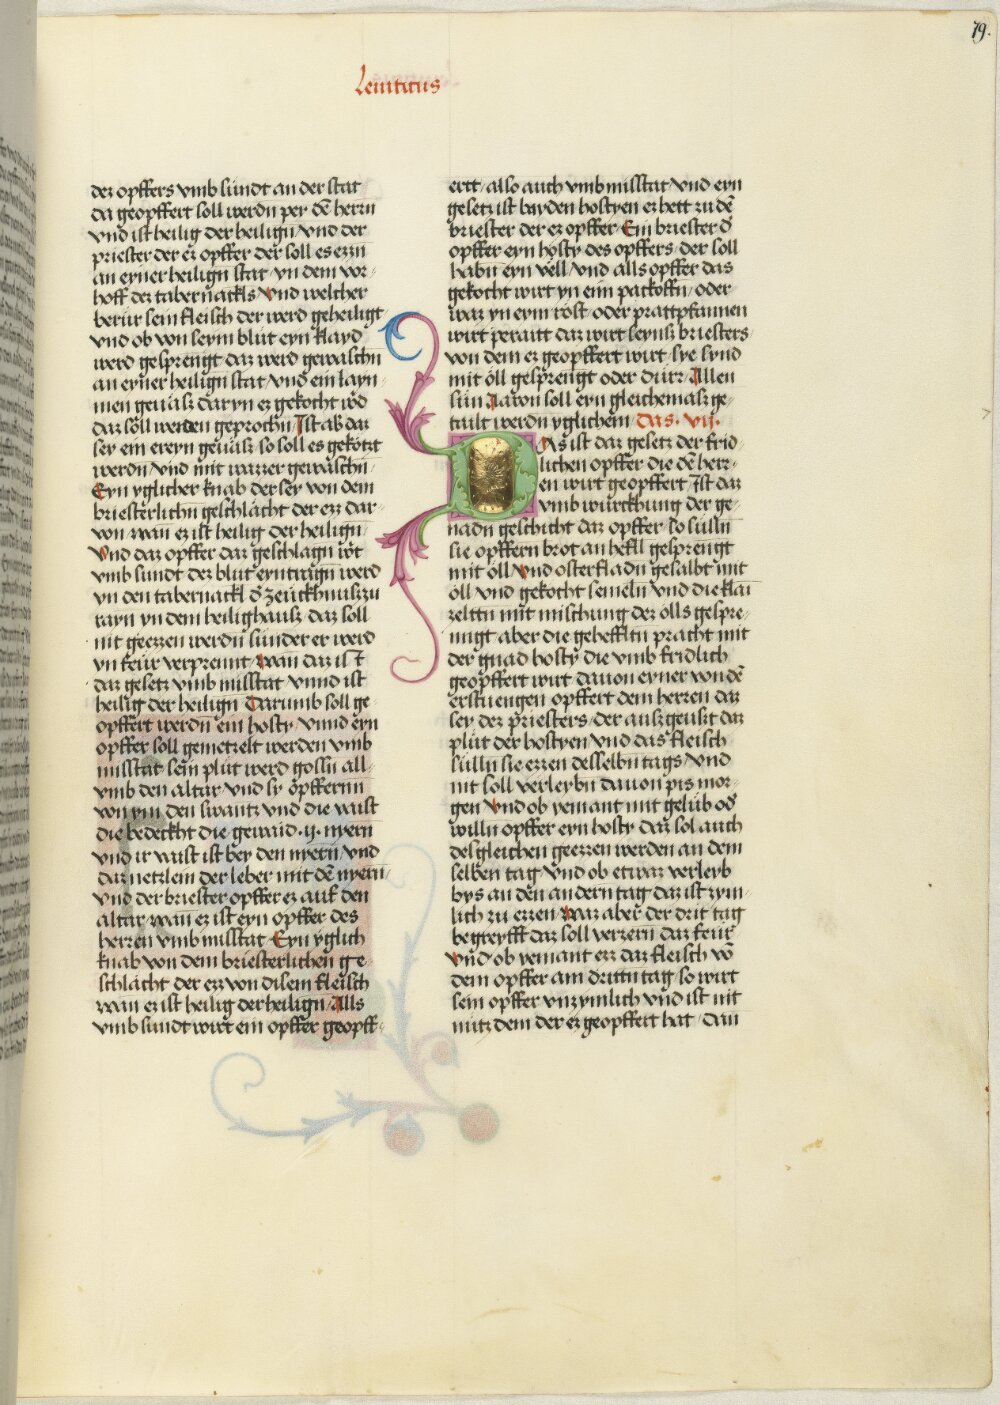 79.
Leuiticus
dez opffers vmb sundt an der stat
da geopffert soll werdn per dē herrn
vnd ist heilig der heilign vnd der
priester der ez opffer der soll es ezzn
an eyner heilign stat yn dem vor-
hoff dez tabernackls vnd welcher
berür sein fleisch der werd geheiligt
vnd ob von seym blut eyn klayd
werd gesprengt daz werd gewaschn
an eyner heilign stat vnd ein layn
men geuasz daryn ez gekocht wd
daz soll werden geprochn Ist ab daz
sey ein ereyn geuasz so soll es gekötzt
werdn vnd mit wazzer gewaschn
Eyn yglicher knab der sey von dem
briesterlichn geschlächt der ezz dar-
von wan ez ist heilig der heilign
vnd daz opffer daz geschlagn wt
vmb sundt dez blut eyntragn werd
yn den tabernackl d zeuckhnusz zu
rayn yn dem heilighausz daz soll
nit geezzen werdn sunder er werd
yn feur verprennt wan daz ist
daz gesetz vmb misstat vnnd ist
heilig der heilign Darumb soll ge
opffert werdn ein hosty vnnd eyn
opffer soll gemetzelt werden vmb
misstat sein plut werd gossn all-
vmb den altar vnd sy opffernn
von ym den swantz vnd die waist
die bedeckht die gewaid .ij. nyern
vnd ir waist ist bey den nyern vnd
daz netzlein der leber mit dē nyern
vnd der briester opffer ez auf den
altar wan ez ist eyn opffer des
herzen vmb misstat Eyn yglich
knab von dem briesterlichen ge
schlächt der ezz von disem fleisch
wan ez ist heilig der heilign Alls
vmb sundt wirt ein opffer geopff-
ertt also auch vmb misstat vnd eyn
gesetz ist bayden hostyen ez hett zu dē
briester der ez opffer Ein briester d
opffer eyn hosty des opffers der soll
habn eyn vell vnd alls opffer das
gekocht wirt yn eim packoffn oder
waz yn eym rost oder prattpfannen
wirt peraitt daz wirt seynsz briesters
von dem ez geopffert wirt sye synd
mit öll gesprengt oder dürz Allen
sün Aaron soll eyn gleichemasz ge-
tailt werdn yglichem Das .vij.
As ist daz gesetz der frid-
lichen opffer die dē herz-
en wirt geopffert Ist daz
vmb würckhung der ge-
nadn geschicht daz opffer so sulln
sie opffern brot an hefll gesprengt
mit öll vnd osterfladn gesalbt mit
öll vnd gekocht semeln vnd die klai
zeltn mit mischung dez ölls gespre-
nngt aber die geheffltn pracht mit
der gnad hosty die vmb fridlich
geopffert wirt dauon eyner von dē
erstuengen opffert dem herzen daz
sey dez priesters der auszgeuszt daz
plüt der hostyen vnd das fleisch
sulln sie ezzen desselbn tags vnd
nit soll verleybn dauon pis mor-
gen vnd ob yemant mit gelüb od
willn opffer eyn hosty daz sol auch
desgleichen geezzen werden an dem
selben tag vnd ob etwaz verleyb
bys an den andern tag daz ist zym-
lich zu ezzen waz aber der drit tag
begreyfft daz soll verzern daz feur
vnd ob yemant ezz daz fleisch vō
dem opffer am drittn tag so wirt
sein opffer vnzymlich vnd ist nit
nütz dem der ez geopffert hat dan